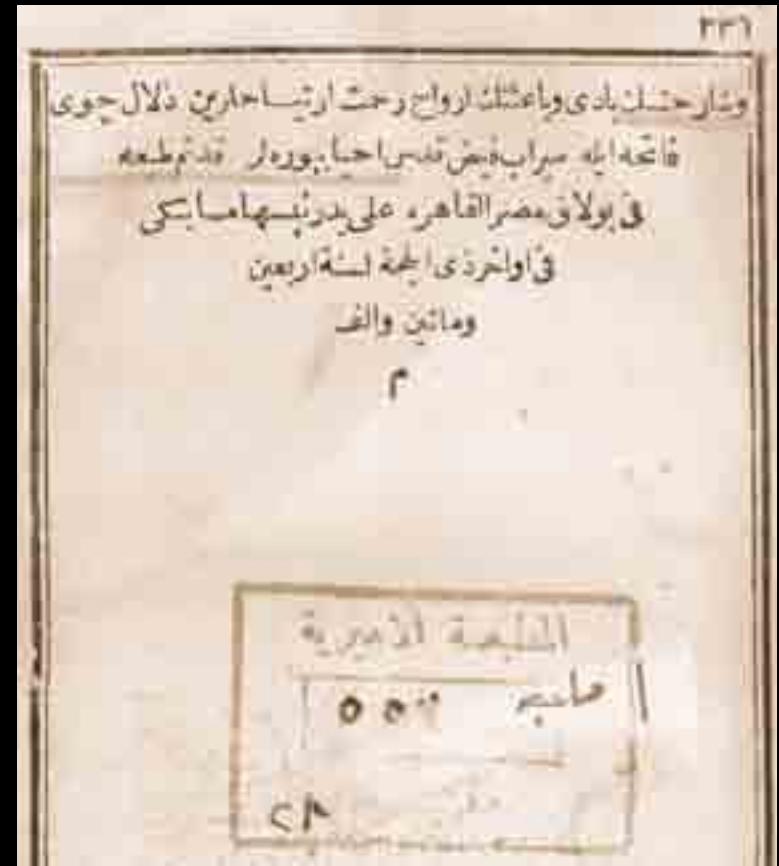 ٣٣٦
وشارحنك بادى وباعثنك ارواح رحمت ارتياحلرين ذلال جوى
فاتحه ايله سيراب فيض قدس احيا بيوره لر قد تم طبعه
فى بولاق مصر القاهره على يد رئيسها
فى اواخر ذى الحجة لسنة اربعين
ومائتين والف
م
المطبعة الأميرية